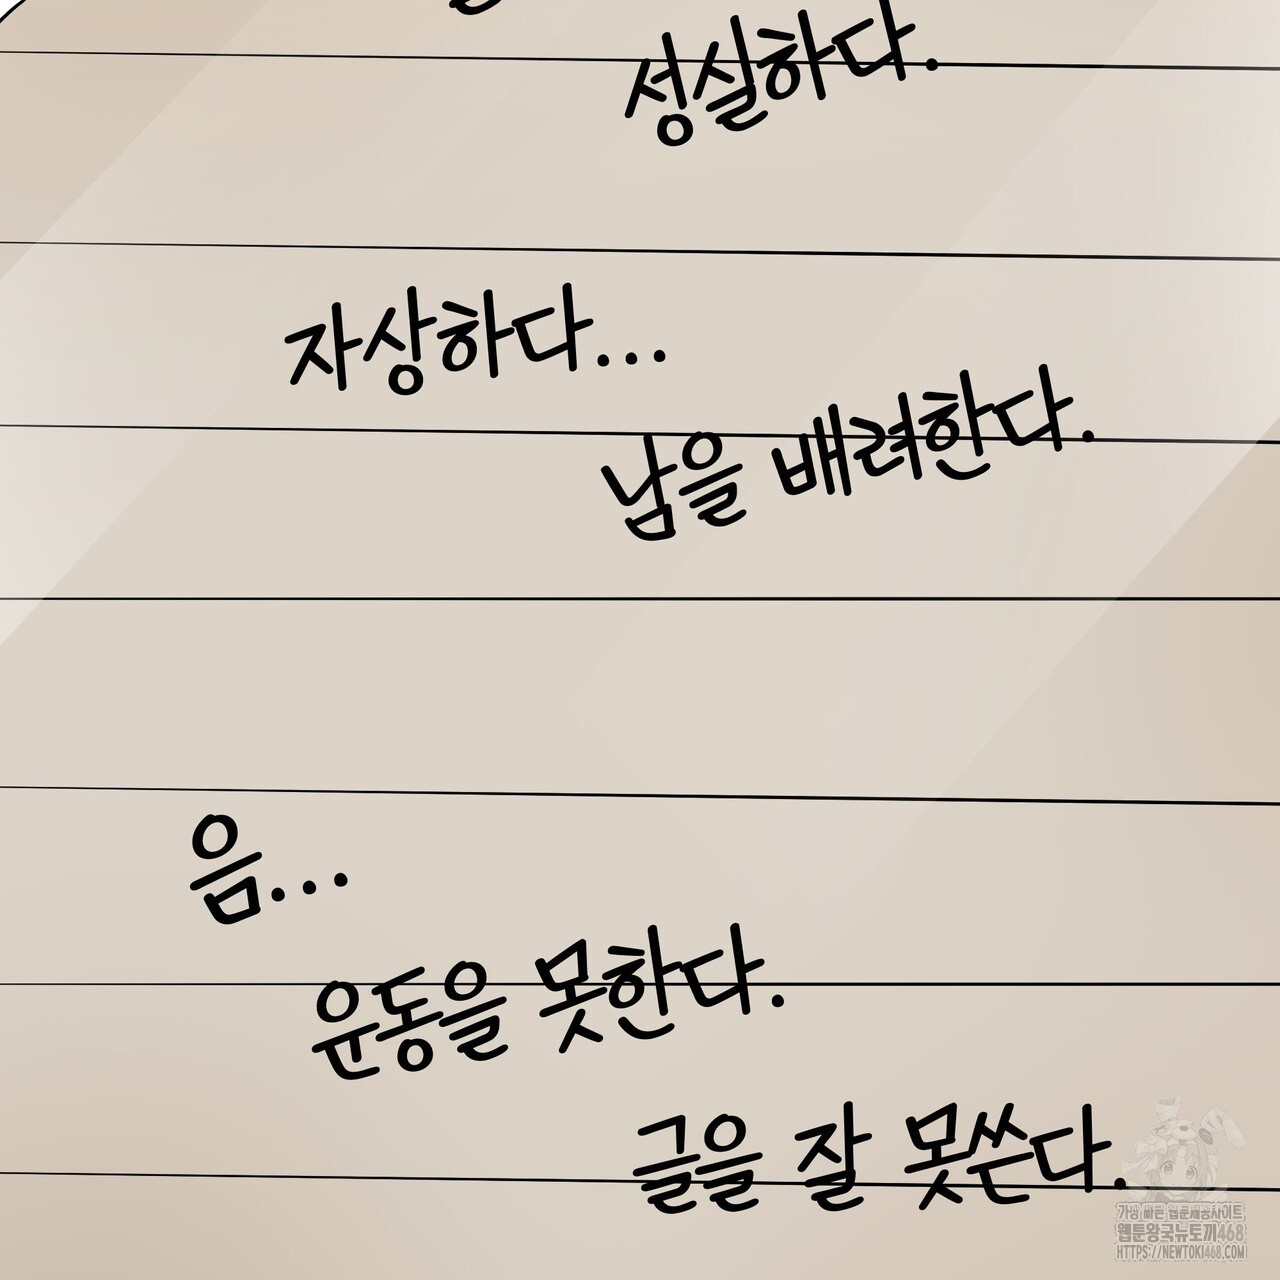 성실하다.
자상하다...
남을 배려한다.
음...
운동을 못한다.
글을 잘 못쓴다.
가장 빠른 웹툰제공사이트
웹툰왕국뉴토끼468
HTTPS://NEWTOKI468.COM